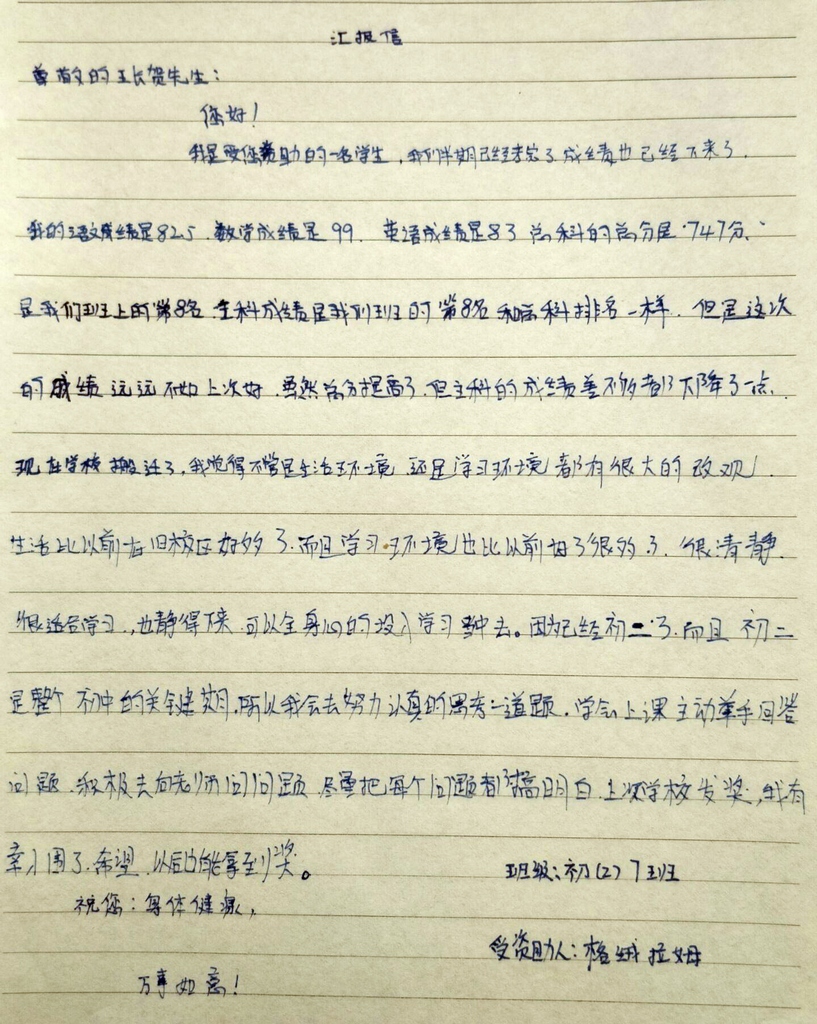 汇报信
尊敬的王长贺先生：
您好！
我是受您资助的一名学生，我们半期已经考完了成绩也已经下来了．
我的语文成绩是82.5．数学成绩是99．英语成绩是83 总科的总分是747分、
是我们班上的第8名．主科成绩是我们班的第8名和总科排名一样．但是这次
的成绩远远不如上次好．虽然总分提高了．但主科的成绩差不多都下降了一点．
现在学校搬迁了，我觉得不管是生活环境 还是学习环境都有很大的改观．
生活比以前在旧校区好多了．而且学习环境也比以前好了很多了．很清静．
很适合学习．也静得下来．可以全身心的投入学习当中去。因为已经初二了．而且初二
是整个初中的关键期．所以我会去努力认真的思考一道题．学会上课主动举手回答
问题．积极去向老师问问题．尽量把每个问题都搞明白．上次学校发奖，我有
幸入围了．希望以后也能拿到奖。
班级：初(2)7班
祝您：身体健康，
受资助人：格绒拉姆
万事如意！